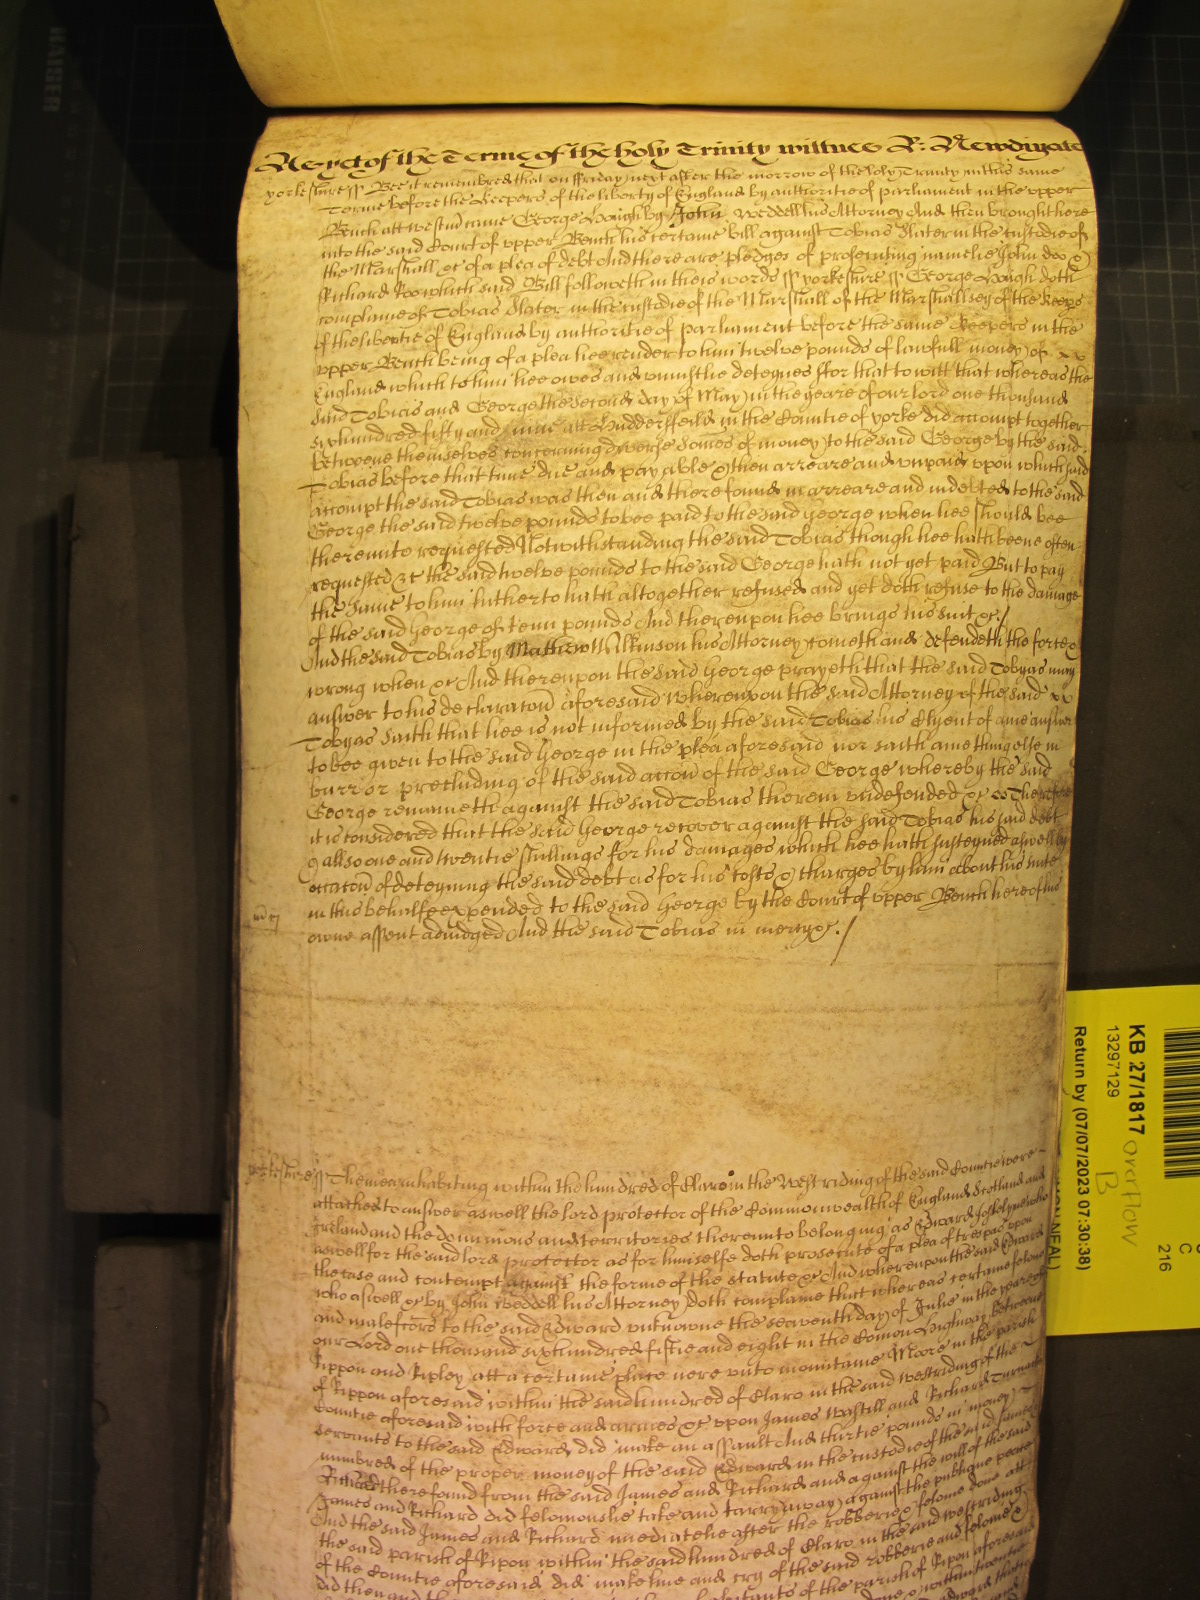 As yet of the Terme of the holy Trinity witnes R: Newdigate
yorkeshire ss Bee it remembred that on ffriday next after the morrow of the holy Trinity in this same
Terme before the Keepers of the liberty of England by authoritie of parliament in the upper
Bench att westm̄ came George Haigh by John Weddell his Attorney And then brought here
into the said Court of upper Bench his certaine bill against Tobias Slater in the custodie of
the Marshall &c of a plea of debt And there are pledges of prosecuting namelie John doo &
Richard Roo which said Bill followeth in theis words ss yorkeshire ss George Haigh doth
complaine of Tobias Slater in the custodie of the Marshall of the Marshallsey of the Keeps
of the libertie of England by authoritie of parliament before the same Keepers in the
upper Bench being of a plea hee render to him twelve pounds of lawfull money of
England which to him hee owes and uniustlie deteynes ffor that to witt that whereas the
said Tobias and George the second day of May in the yeare of our lord one thousand
sixhundred fifty and nine att Huddersfeild in the Countie of yorke did accompt together
betweene themselves concerning diverse somes of money to the said George by the said
Tobias before that time due and payable & then arreare and unpaid upon which said
accompt the said Tobias was then and there found in arreare and indebted to the said
George the said twelve pounds to bee paid to the said George when hee should bee
thereunto requested Notwithstanding the said Tobias though hee hath beene often
requested &c the said twelve pounds to the said George hath not yet paid But to pay
the same to him hitherto hath altogether refused and yet doth refuse to the damage
of the said George of tenn pounds And thereupon hee brings his suit &c /
And the said Tobias by Mathew Wilkinson his Attorney cometh and defendeth the force &
wrong when &c And thereupon the said George prayeth that the said Tobyas may
answer to his declaracōn aforesaid whereupon the said Attorney of the said
Tobyas saith that hee is not informed by the said Tobias his Clyent of anie answer
to bee given to the said George in the plea aforesaid nor saith anie thing else in
barr or precluding of the said accōn of the said George whereby the said
George remaineth against the said Tobias therein undefended &c Therefore
it is considered that the said George recover against the said Tobias his said debt
& allsoe one and twentie shillings for his damages which hee hath susteyned aswell by
occacōn of deteyning the said debt as for his costs & charges by him about his suite
in this behalfe expended to the said George by the Court of upper Bench here of his
owne assent adiudged And the said Tobias in mercy &c. /
yorkeshire ss The men inhabiting within the hundred of Claro in the West riding of the said Countie were
attached to answer aswell the lord protector of the Commonwealth of England Scotland and
Ireland and the dominions and territories thereunto belonging as Edward Jostelyne who
aswell for the said lord protector as for himselfe doth prosecute of a plea of trespas upon
the case and contempt against the forme of the statute &c And whereupon the said Edward
who aswell &c by John Weddell his Attorney doth complaine that whereas certaine felons
and malefcōrs to the said Edward unknowne the seaventh day of Julie in the yeare of
our Lord one thousand sixhundred fiftie and eight in the Comon highway betweene
Rippon and Ripley att a certaine place nere unto mountaine Moore in the parish
of Rippon aforesaid within the said hundred of Claro in the said westriding of the
Countie aforesaid with force and armes &c upon James Wastill and Richard Turner
servants to the said Edward did make an assault And thirtie pounds in money
numbred of the proper money of the said Edward in the custodie of the said James &
Richard there found from the said James and Richard and against the will of the said
James and Richard did feloniouslie take and carry away against the publique peace
And the said James and Richard imediatelie after the robberie & felonie done att
the said parish of Ripon within the said hundred of Claro in the said westriding
of the Countie aforesaid did make hue and cry of the said robberie and felonie &
KAISER
KB 27/1817
13297129
Return by (07/07/2023 07:30:38)
overflow
B
C
216